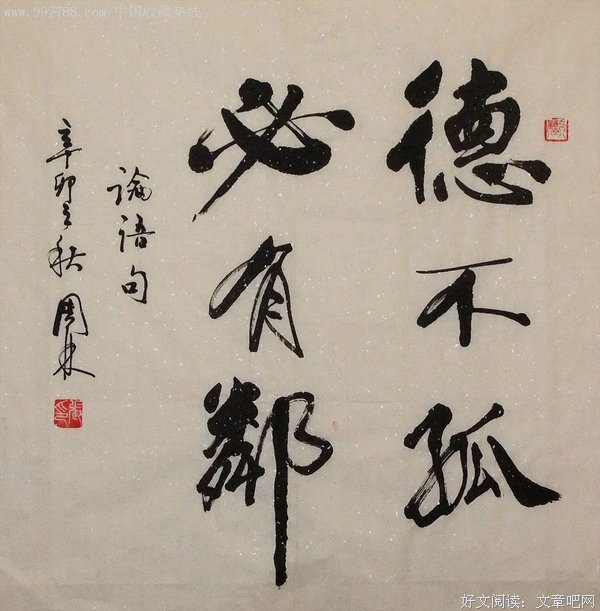 www.997788.com 中国收藏热线
德不孤
必有鄰
論語句
辛卯之秋 周林
好文阅读：文章吧网